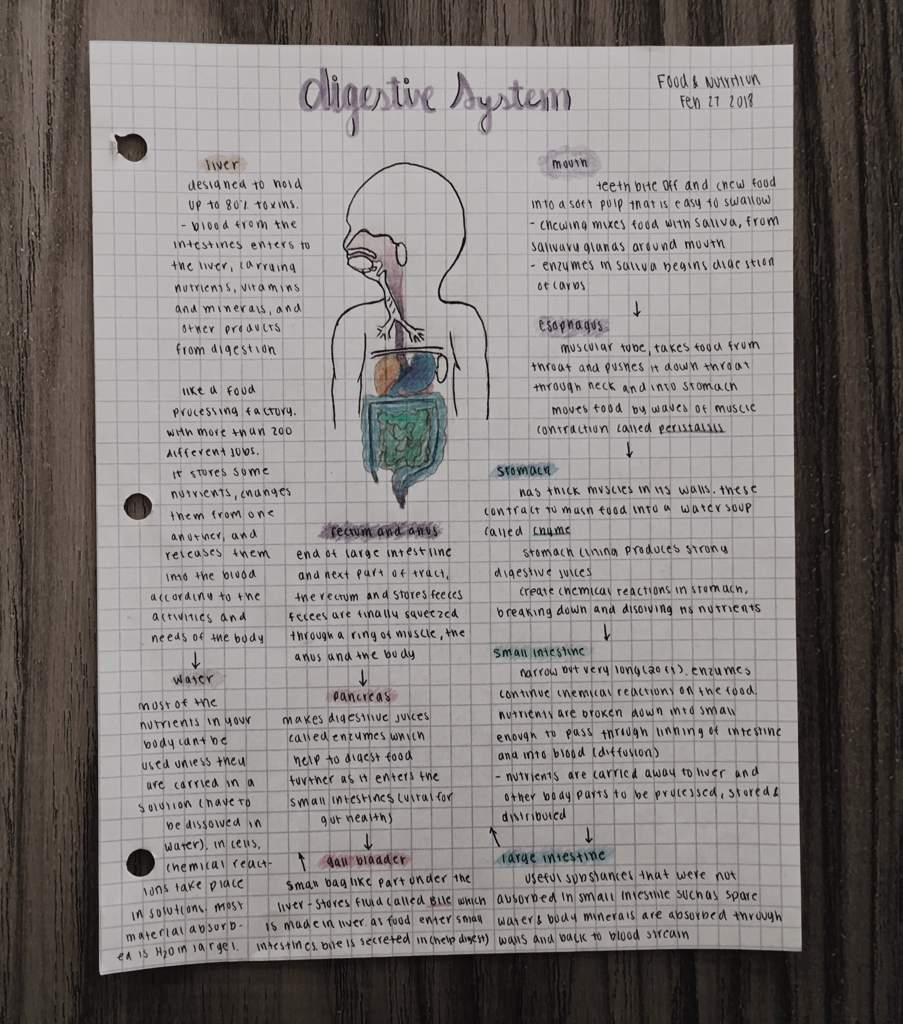 digestive System
Food & Nutrition
Feb 27 2018
liver
designed to hold
up to 80% toxins.
- blood from the
intestines enters to
the liver, carrying
nutrients, vitamins
and minerals, and
other products
from digestion
like a food
processing factory.
with more than 200
different jobs.
it stores some
nutrients, changes
them from one
another, and
releases them
into the blood
according to the
activities and
needs of the body
↓
water
most of the
nutrients in your
body cant be
used unless they
are carried in a
solution (have to
be dissolved in
water). in cells,
chemical react-
ions take place
in solutions. most
material absorb-
ed is H₂O in large I.
rectum and anus
end of large intestine
and next part of tract,
the rectum and stores feeces
feeces are finally squeezed
through a ring of muscle, the
anus and the body
↓
pancreas
makes digestive juices
called enzymes which
help to digest food
further as it enters the
small intestines (vital for
gut health)
↑ ↓
gall bladder
small bag like part under the
liver - stores fluid called Bile which
is made in liver as food enter small
intestines. bile is secreted in (help digest)
mouth
teeth bite off and chew food
into a soft pulp that is easy to swallow
- chewing mixes food with saliva, from
salivary glands around mouth
- enzymes in saliva begins digestion
of carbs
↓
esophagus
muscular tube, takes food from
throat and pushes it down throat
through neck and into stomach
moves food by waves of muscle
contraction called peristalsis
↓
stomach
has thick muscles in its walls. these
contract to mash food into a water soup
called chyme
stomach lining produces strong
digestive juices
create chemical reactions in stomach,
breaking down and disolving its nutrients
↓
small intestine
narrow but very long (20 ft). enzymes
continue chemical reactions on the food.
nutrients are broken down into small
enough to pass through linning of intestine
and into blood (diffusion)
- nutrients are carried away to liver and
other body parts to be processed, stored &
distributed
↑ ↓
large intestine
useful substances that were not
absorbed in small intestine such as spare
water & body minerals are absorbed through
walls and back to blood stream